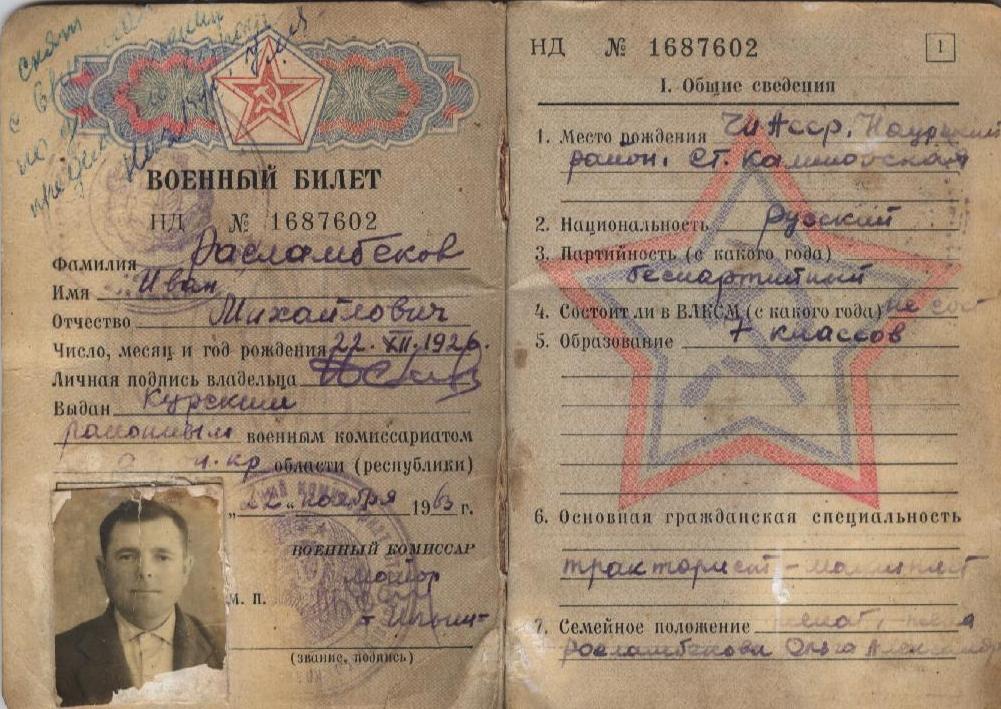 ВОЕННЫЙ БИЛЕТ
НД № 1687602
Фамилия Расламбеков
Имя Иван
Отчество Михайлович
Число, месяц и год рождения 22. XII. 1926.
Личная подпись владельца
Выдан Курским
районным военным комиссариатом
кр области (республики)
„22“ ноября 1963 г.
ВОЕННЫЙ КОМИССАР
майор
М. П.
(звание, подпись)
НД № 1687602
1
I. Общие сведения
1. Место рождения ЧИАССР, Наурский
район, ст. Калиновская
2. Национальность русский
3. Партийность (с какого года)
беспартийный
4. Состоит ли в ВЛКСМ (с какого года) не сос
5. Образование 7 классов
6. Основная гражданская специальность
тракторист - машинист
7. Семейное положение женат, жена
Расламбекова Ольга